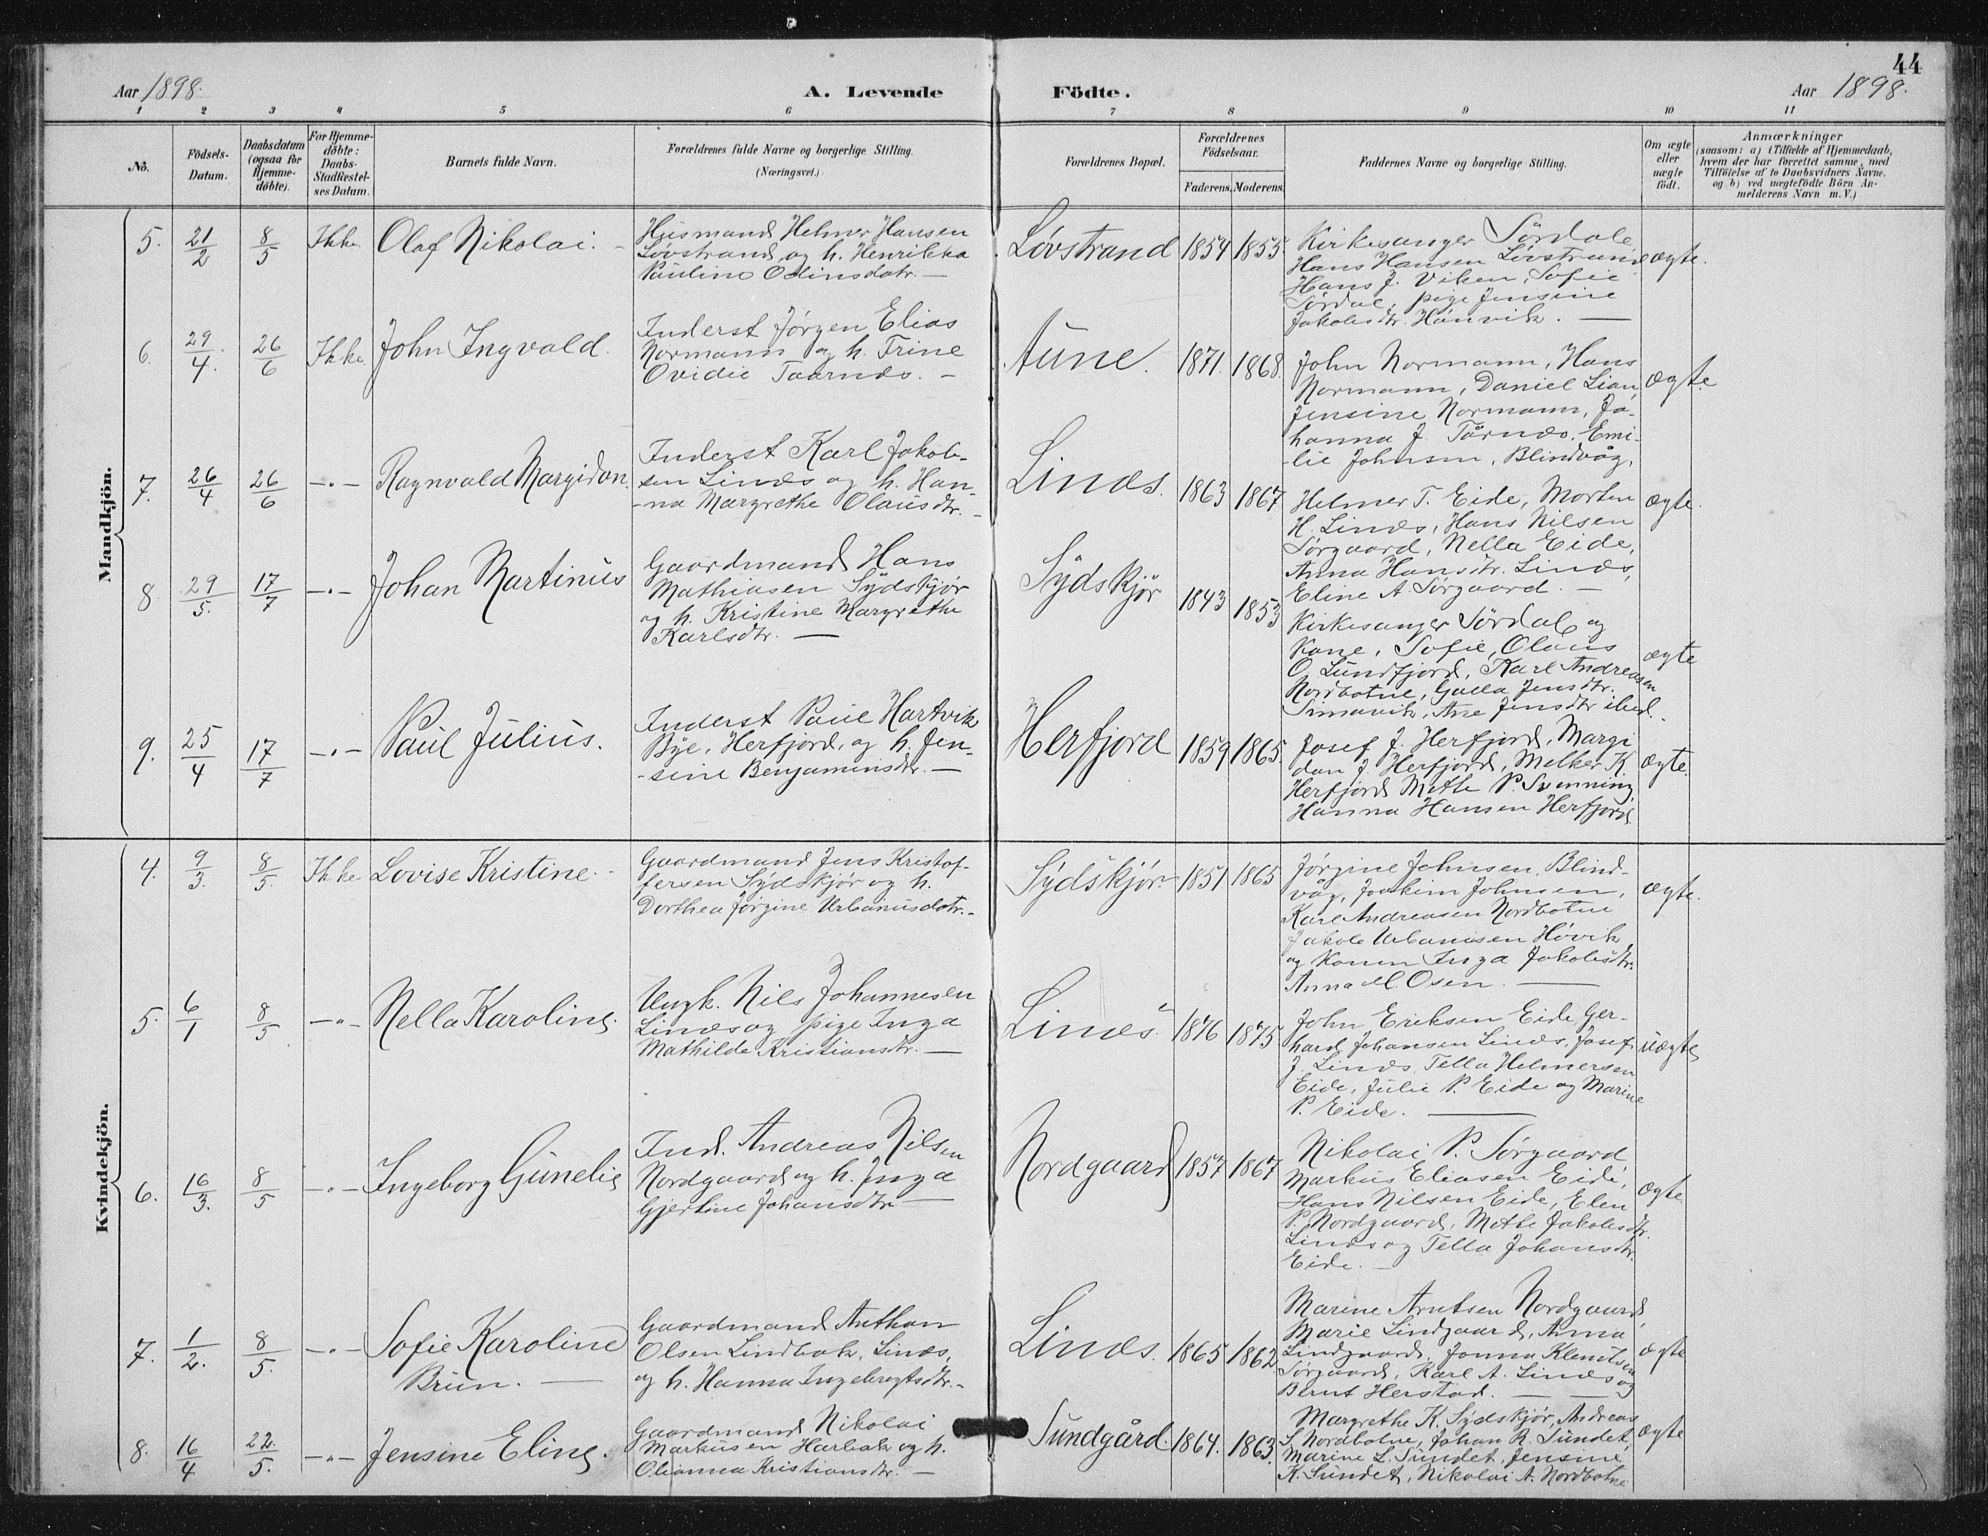 44
Aar 1898.
A. Levende
Födte.
Aar 1898.
1 2 3 4 5 6 7 8 9 10 11
No.
Födsels-
Datum.
Daabsdatum
(ogsaa för
Hjemme-
döbte).
For Hjemme-
döbte:
Daabs-
Stadfæstel-
ses Datum.
Barnets fulde Navn.
Forældrenes fulde Navne og borgerlige Stilling.
(Næringsvei.)
Forældrenes Bopæl.
Forældrenes
Födselsaar.
Faderens. Moderens.
Faddernes Navne og borgerlige Stilling.
Om ægte
eller
uægte
födt.
Anmærkninger
(saasom: a) i Tilfælde af Hjemmedaab,
hvem der har forrettet samme, med
Tilföielse af to Daabsvidners Navne.
og b) ved uægtefödte Börn An-
melderens Navn m. V.)
Mandkjön.
5. 21/2 8/5 Ikke Olaf Nikolai. -
Husmand Helmer Hansen
Løvstrand og h. Henrikka
Pauline Odinsdatr. -
Løvstrand 1854 1855.
Kirkesanger Sørdale,
Hans Hansen Løvstrand
Hans J. Viken, Sofie
Sørdal, pige Jensine
Jakobsdtr. Hanvik. -
ægte.
6. 29/4. 26/6 Ikke John Ingvald.
Inderst Jørgen Elias
Normann og h. Trine
Ovidie Taarnæs. -
Aune. 1871. 1868.
John Normann, Hans
Normann, Daniel Lian,
Jensine Normann, Jo-
hanna J. Tårnæs, Emi-
lie Johnsen, Blindvåg,
ægte.
7. 26/4 26/6 -"- Ragnvald Margidon.
Inderst Karl Jakob-
sen Linæs og h. Han-
-na Margrethe Olausdtr. -
Linæs. 1863 1867
Helmer T. Eide, Morten
H. Linæs, Hans Nilsen
Sørgaard, Nella Eide,
Anna Hansdtr. Linæs,
Eline A. Sørgaard. -
ægte.
8 29/5. 17/7 -"- Johan Martinus
Gaardmand Hans
Mathiasen Sydskjør
og h. Kristine Margrethe
Karlsdtr. -
Sydskjør 1843 1853
Kirkesanger Sørdal og
Kone, Sofie, Olaus
O. Sundfjord, Karl Andreasen
Nordbotne, Galla Jensdtr.
Simavik, Ane Jensdtr ibid.
ægte
9. 25/4 17/7 -"- Paul Julius.
Inderst Paul Hartvik
Bye, Herfjord, og h. Jen-
-sine Benjaminsdtr. -
Herfjord 1859 1865.
Josef J. Herfjord, Margi
don J. Herfjord, Melker K.
Herfjord Mette P. Svenning,
Hanna Hansen Herfjord
ægte.
Kvindekjön.
4. 9/3. 8/5. Ikke Lovise Kristine. -
Gaardmand Jens Kristof-
fersen Sydskjør og h.
Dorthea Jørgine Urbanusdatr. -
Sydskjør. 1851 1865
Jørgine Johnsen, Blind-
våg, Joakim Johnsen,
Karl Andreasen Nordbotne
Jakob Urbanusen Høvik
og Konen Inga Jakobsdtr.
Anna M Osen. -
ægte.
5. 6/1 8/5 -"- Nella Karoline.
Ungk. Nils Johannesen
Linæs og pige Inga
Mathilde Kristiansdtr. -
Linæs. 1876 1875.
John Eriksen Eide, Ger-
hard Johansen Linæs, Josef
J. Linæs, Tella Helmersen
Eide, Julie P. Eide og Marine
P. Eide. -
uægte
6. 16/3. 8/5 -"- Ingeborg Gunelie
Ind. Andreas Nilsen
Nordgaard og h. Inga
Gjertine Johansdtr. -
Nordgaard 1857 1867
Nikolai P. Sørgaard
Markus Eliasen Eide,
Hans Nilsen Eide, Elen
P. Nordgaard, Mette Jakobsdtr.
Linæs og Tella Johansdtr.
Eide. -
ægte
7. 1/2. 8/5. -"- Sofie Karoline
Brun. -
Gaardmand Anthon
Olsen Lindbak, Linæs,
og h. Hanna Ingebregtsdtr. -
Linæs. 1865 1862
Marine Arntsen Nordgaard,
Marie Lindgaard, Anna
Lindgaard, Jonna Klemetsen
Sørgaard, Karl A. Linæs og
Bernt Herstad. -
ægte
8. 16/4 22/5. -"- Jensine Eline.
Gaardmand Nikolai
Markusen Harbak og h.
Olianna Kristiansdtr. -
Sundgård. 1864. 1863.
Margrethe K. Sydskjør, Andreas
S. Nordbotne, Johan R. Sundet,
Marine L. Sundet, Jensine
K. Sundet, Nikolai A. Nordbotne
ægte